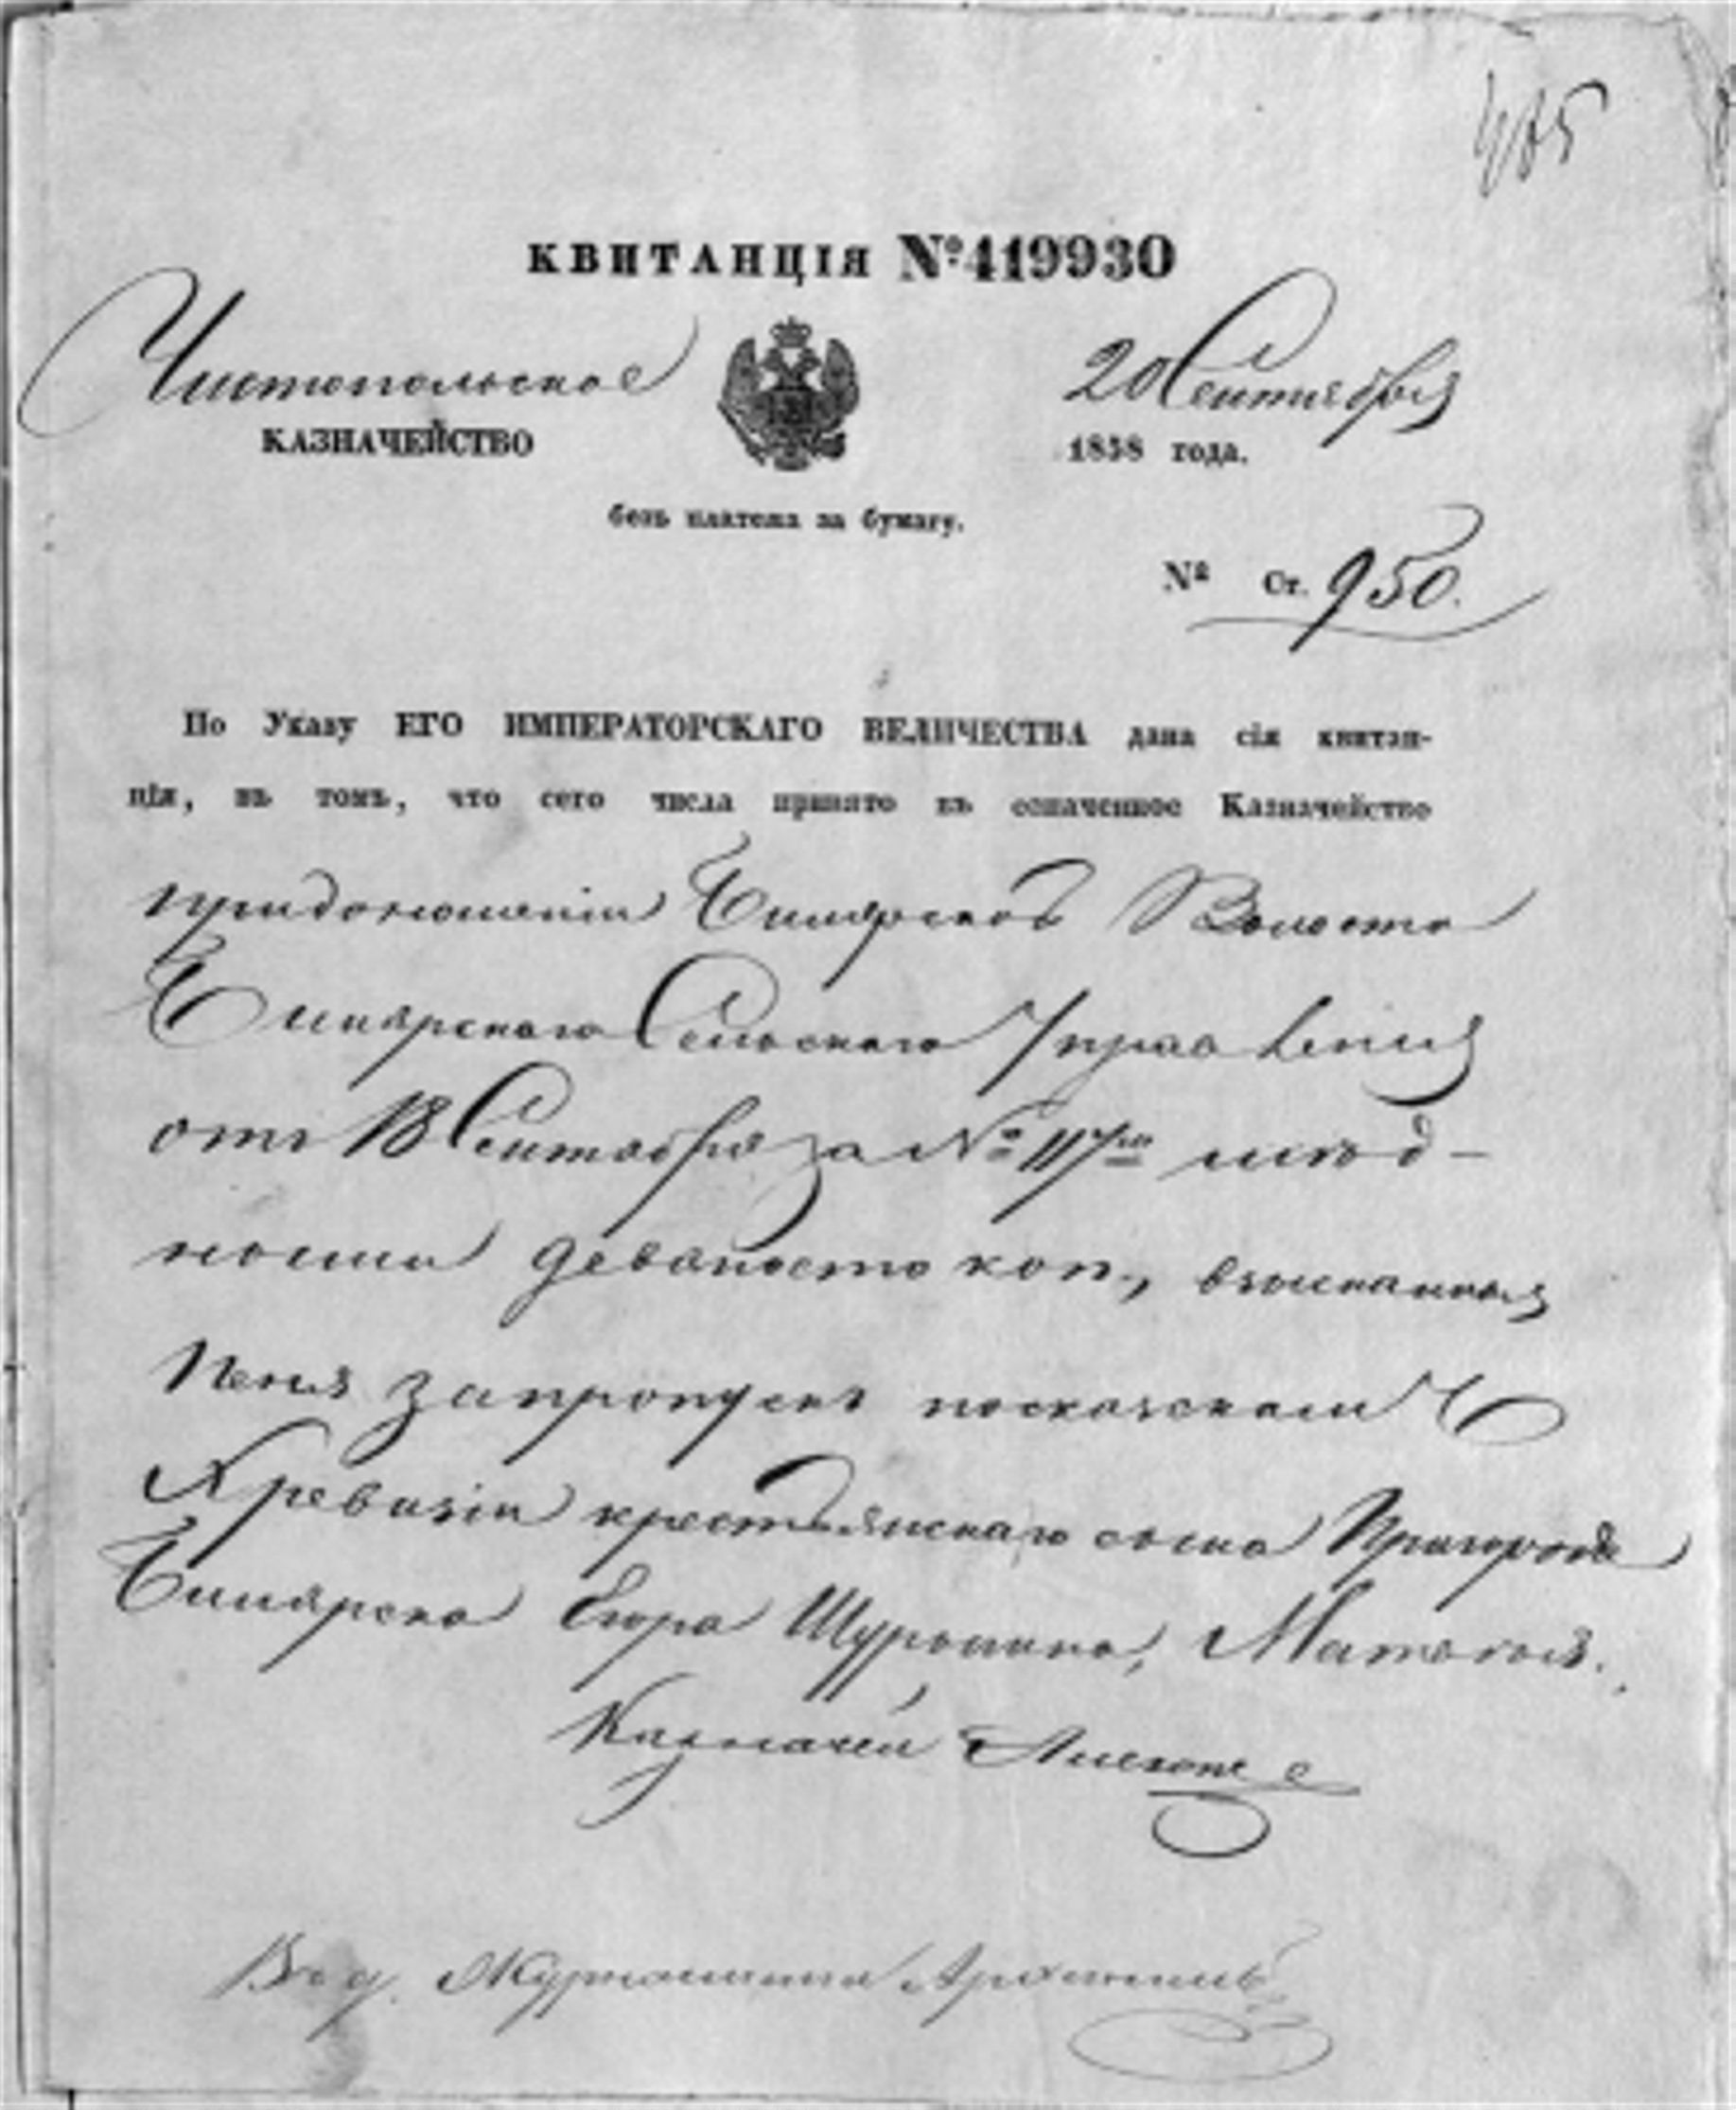 485
КВИТАНЦІЯ №419930
Чистопольское
КАЗНАЧЕЙСТВО
20 Сентября
1858 года.
безъ платежа за бумагу.
№ Ст. 950.
По Указу ЕГО ИМПЕРАТОРСКАГО ВЕЛИЧЕСТВА дана сія квитан-
ція, въ томъ, что сего числа принято въ означенное Казначейство
придоношеніи Билярской Волости
Билярского Сельского Управленія
отъ 18 Сентября за № 117м мѣд-
ною девяносто коп., взысканныя
Пени запропускъ посказкамъ
Кревизіи крестьянскаго сына Пригорода
Билярска Егора Шурыгина, Матвѣя.
Казначей
Бух. Журналистъ